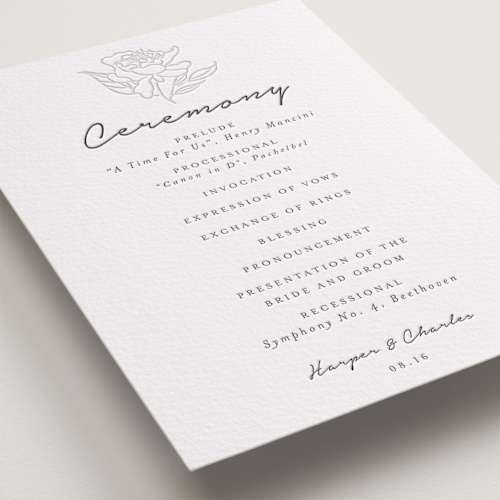 Ceremony
PRELUDE
"A Time For Us", Henry Mancini
PROCESSIONAL
"Canon in D", Pachelbel
INVOCATION
EXPRESSION OF VOWS
EXCHANGE OF RINGS
BLESSING
PRONOUNCEMENT
PRESENTATION OF THE
BRIDE AND GROOM
RECESSIONAL
Symphony No. 4, Beethoven
Harper & Charles
08.16